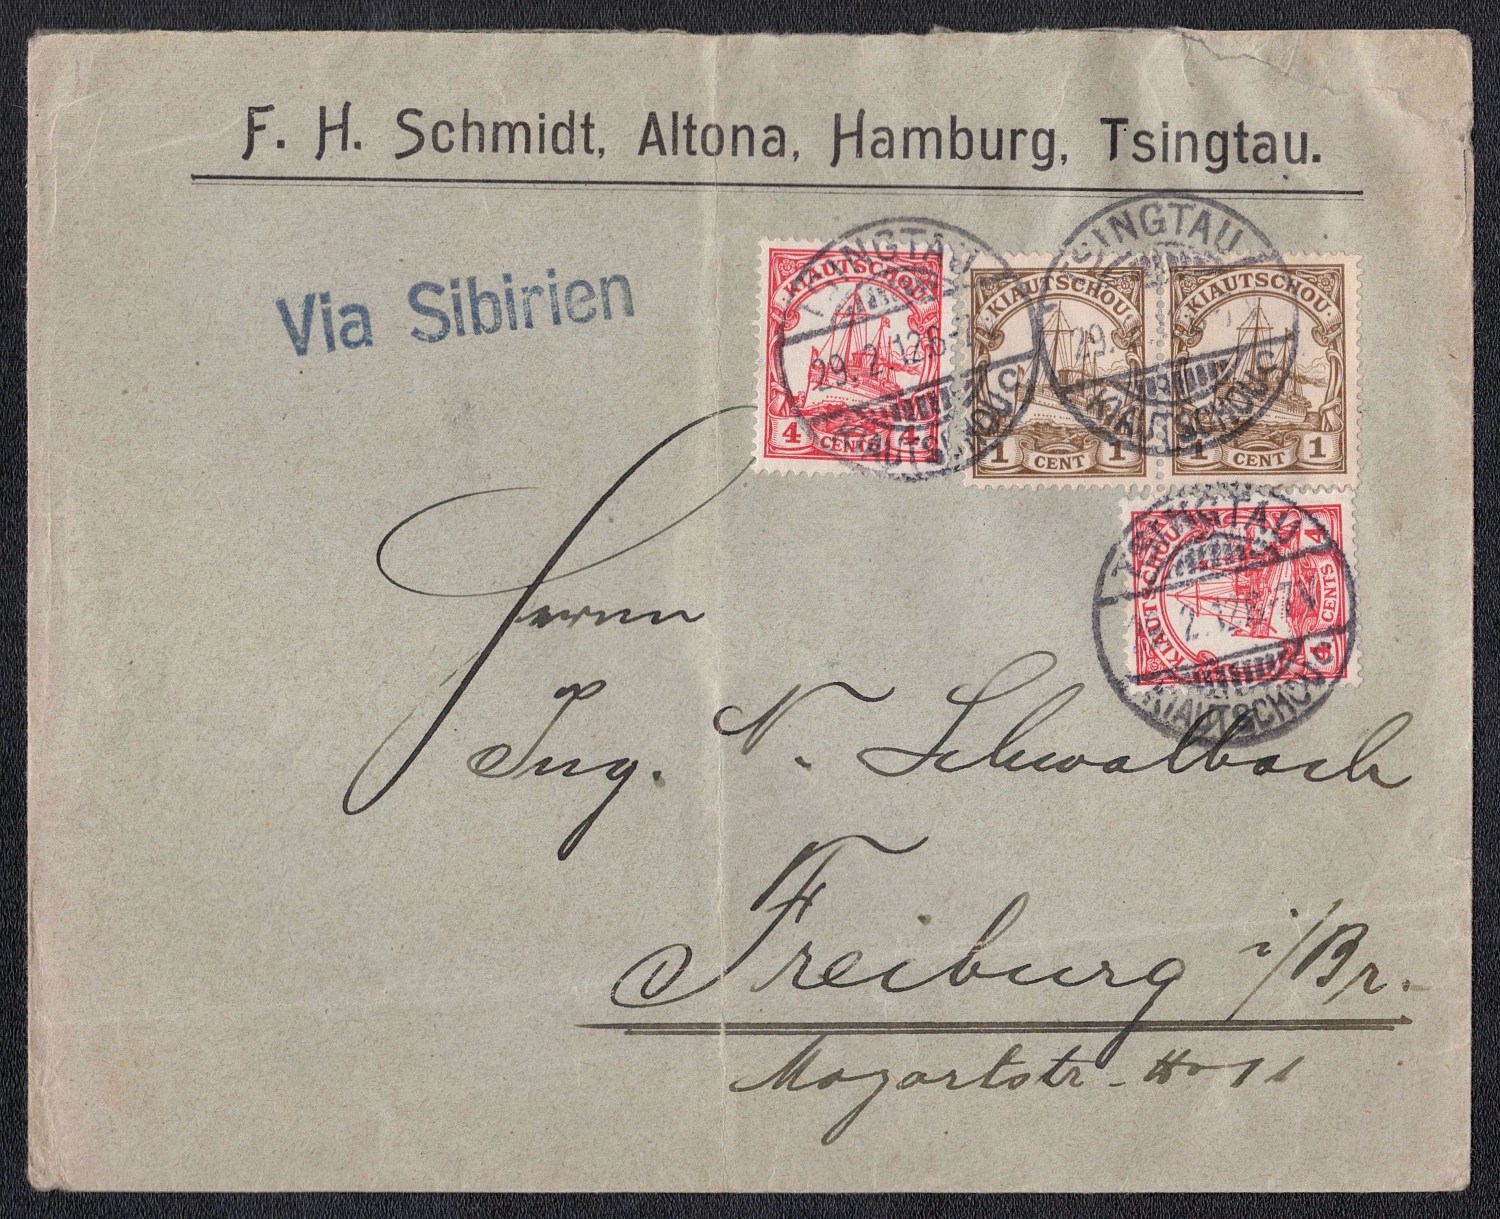 F. H. Schmidt, Altona, Hamburg, Tsingtau.
Via Sibirien
KIAUTSCHOU
4 CENTS 4
KIAUTSCHOU
1 CENT 1
KIAUTSCHOU
1 CENT 1
TSINGTAU
29. 2. 12. 6-7
KIAUTSCHOU
TSINGTAU
29.
KIAUTSCHOU
KIAUTSCHOU
4 CENTS 4
TSINGTAU
2. 12
KIAUTSCHOU
Herrn
Ing. N. Schwalbach
Freiburg i/Br.
Mozartstr. No 11